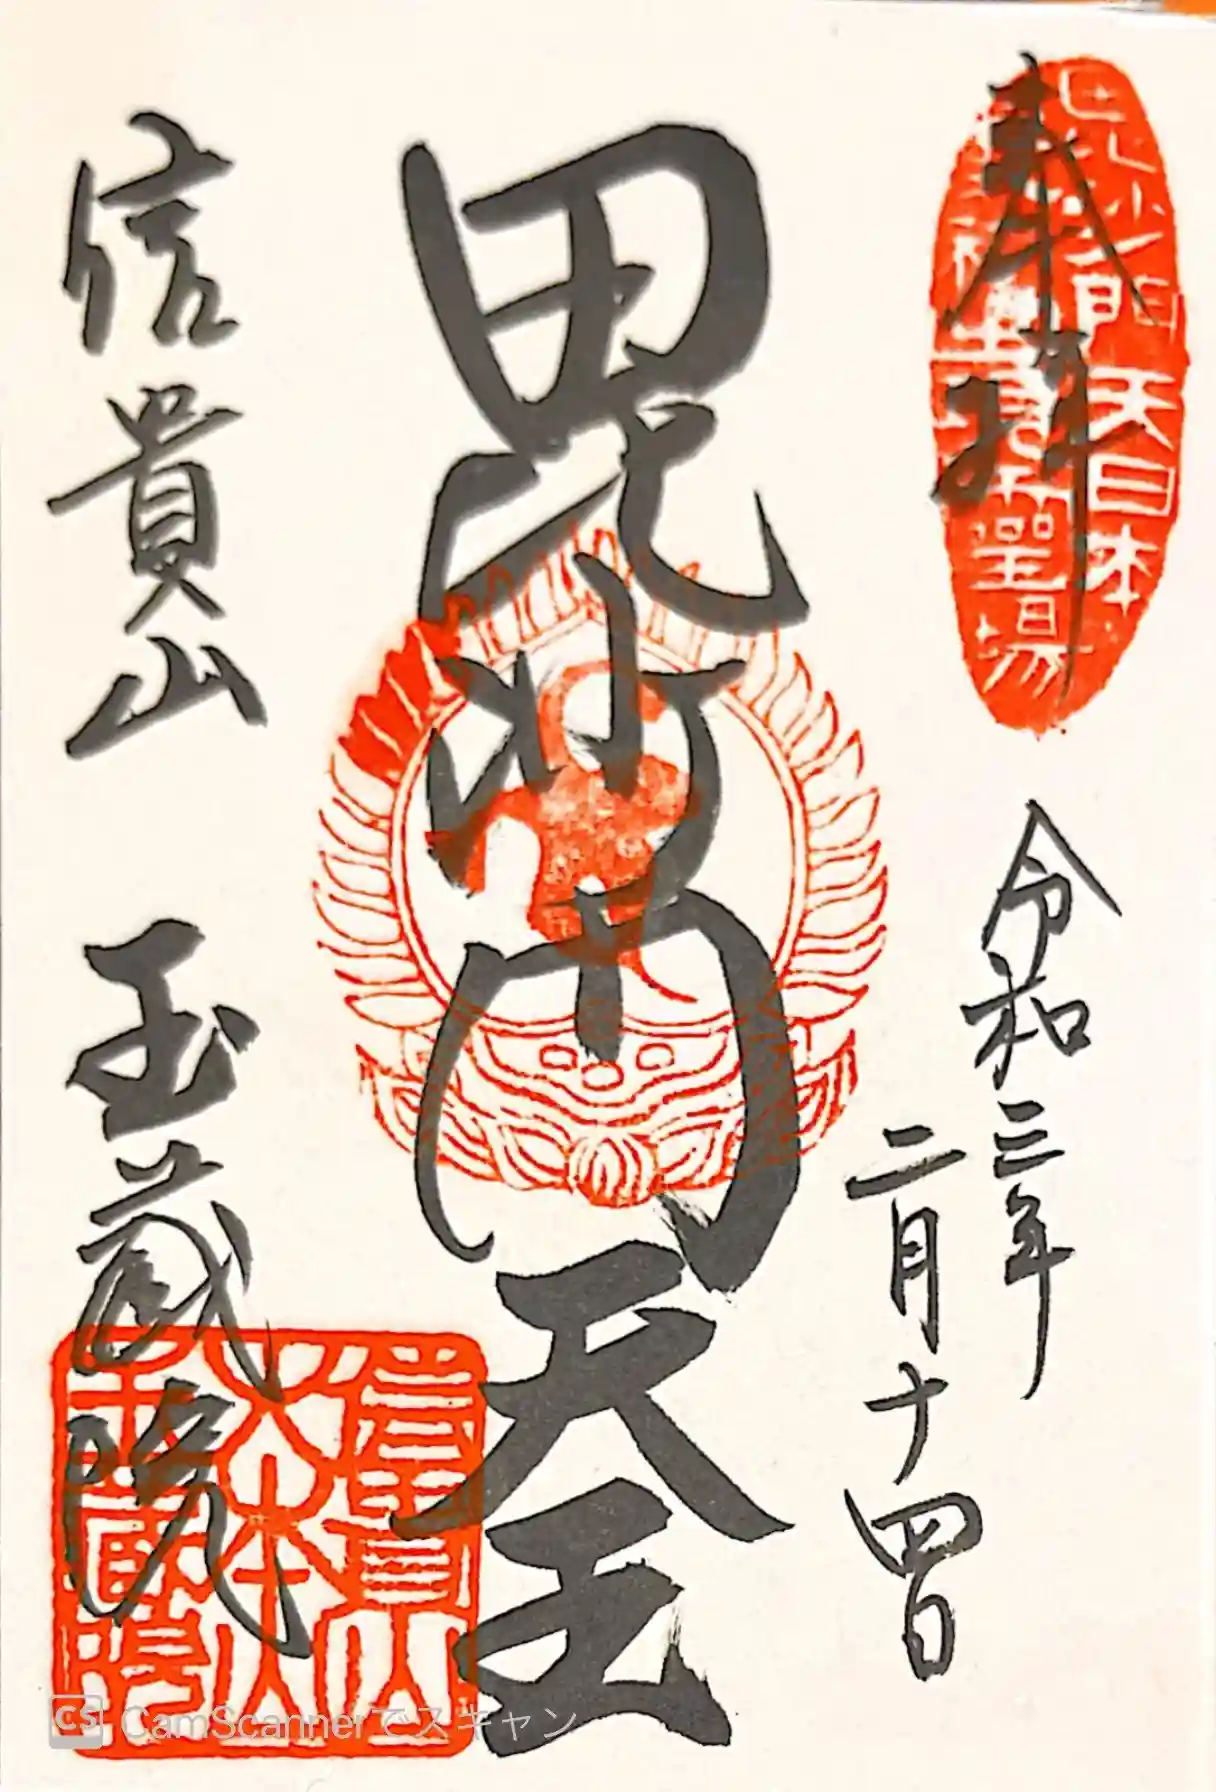 奉拝
令和三年
二月十四日
毘沙門天王
信貴山 玉蔵院
信貴山
大本山
玉蔵院
CS CamScannerでスキャン